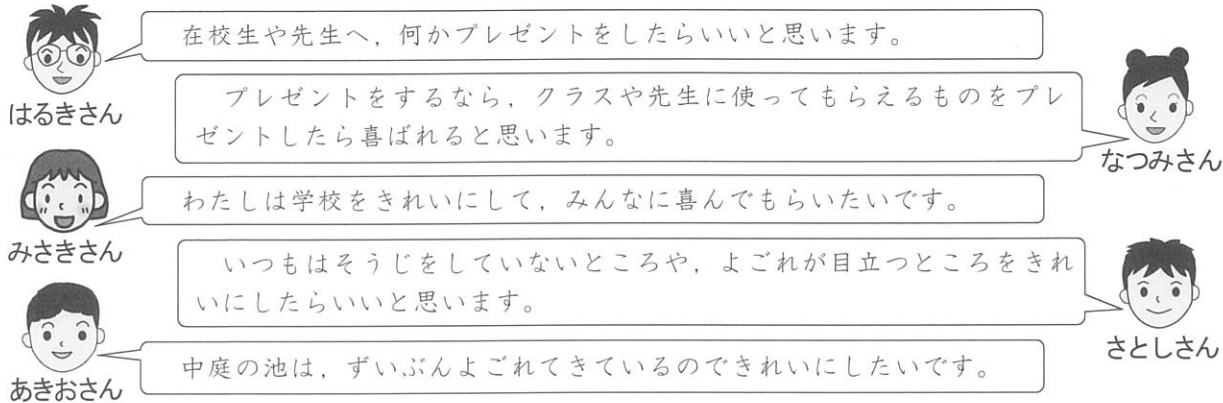 在校生や先生へ，何かプレゼントをしたらいいと思います。
はるきさん
プレゼントをするなら，クラスや先生に使ってもらえるものをプレ
ゼントしたら喜ばれると思います。
なつみさん
わたしは学校をきれいにして，みんなに喜んでもらいたいです。
みさきさん
いつもはそうじをしていないところや，よごれが目立つところをきれ
いにしたらいいと思います。
さとしさん
中庭の池は，ずいぶんよごれてきているのできれいにしたいです。
あきおさん